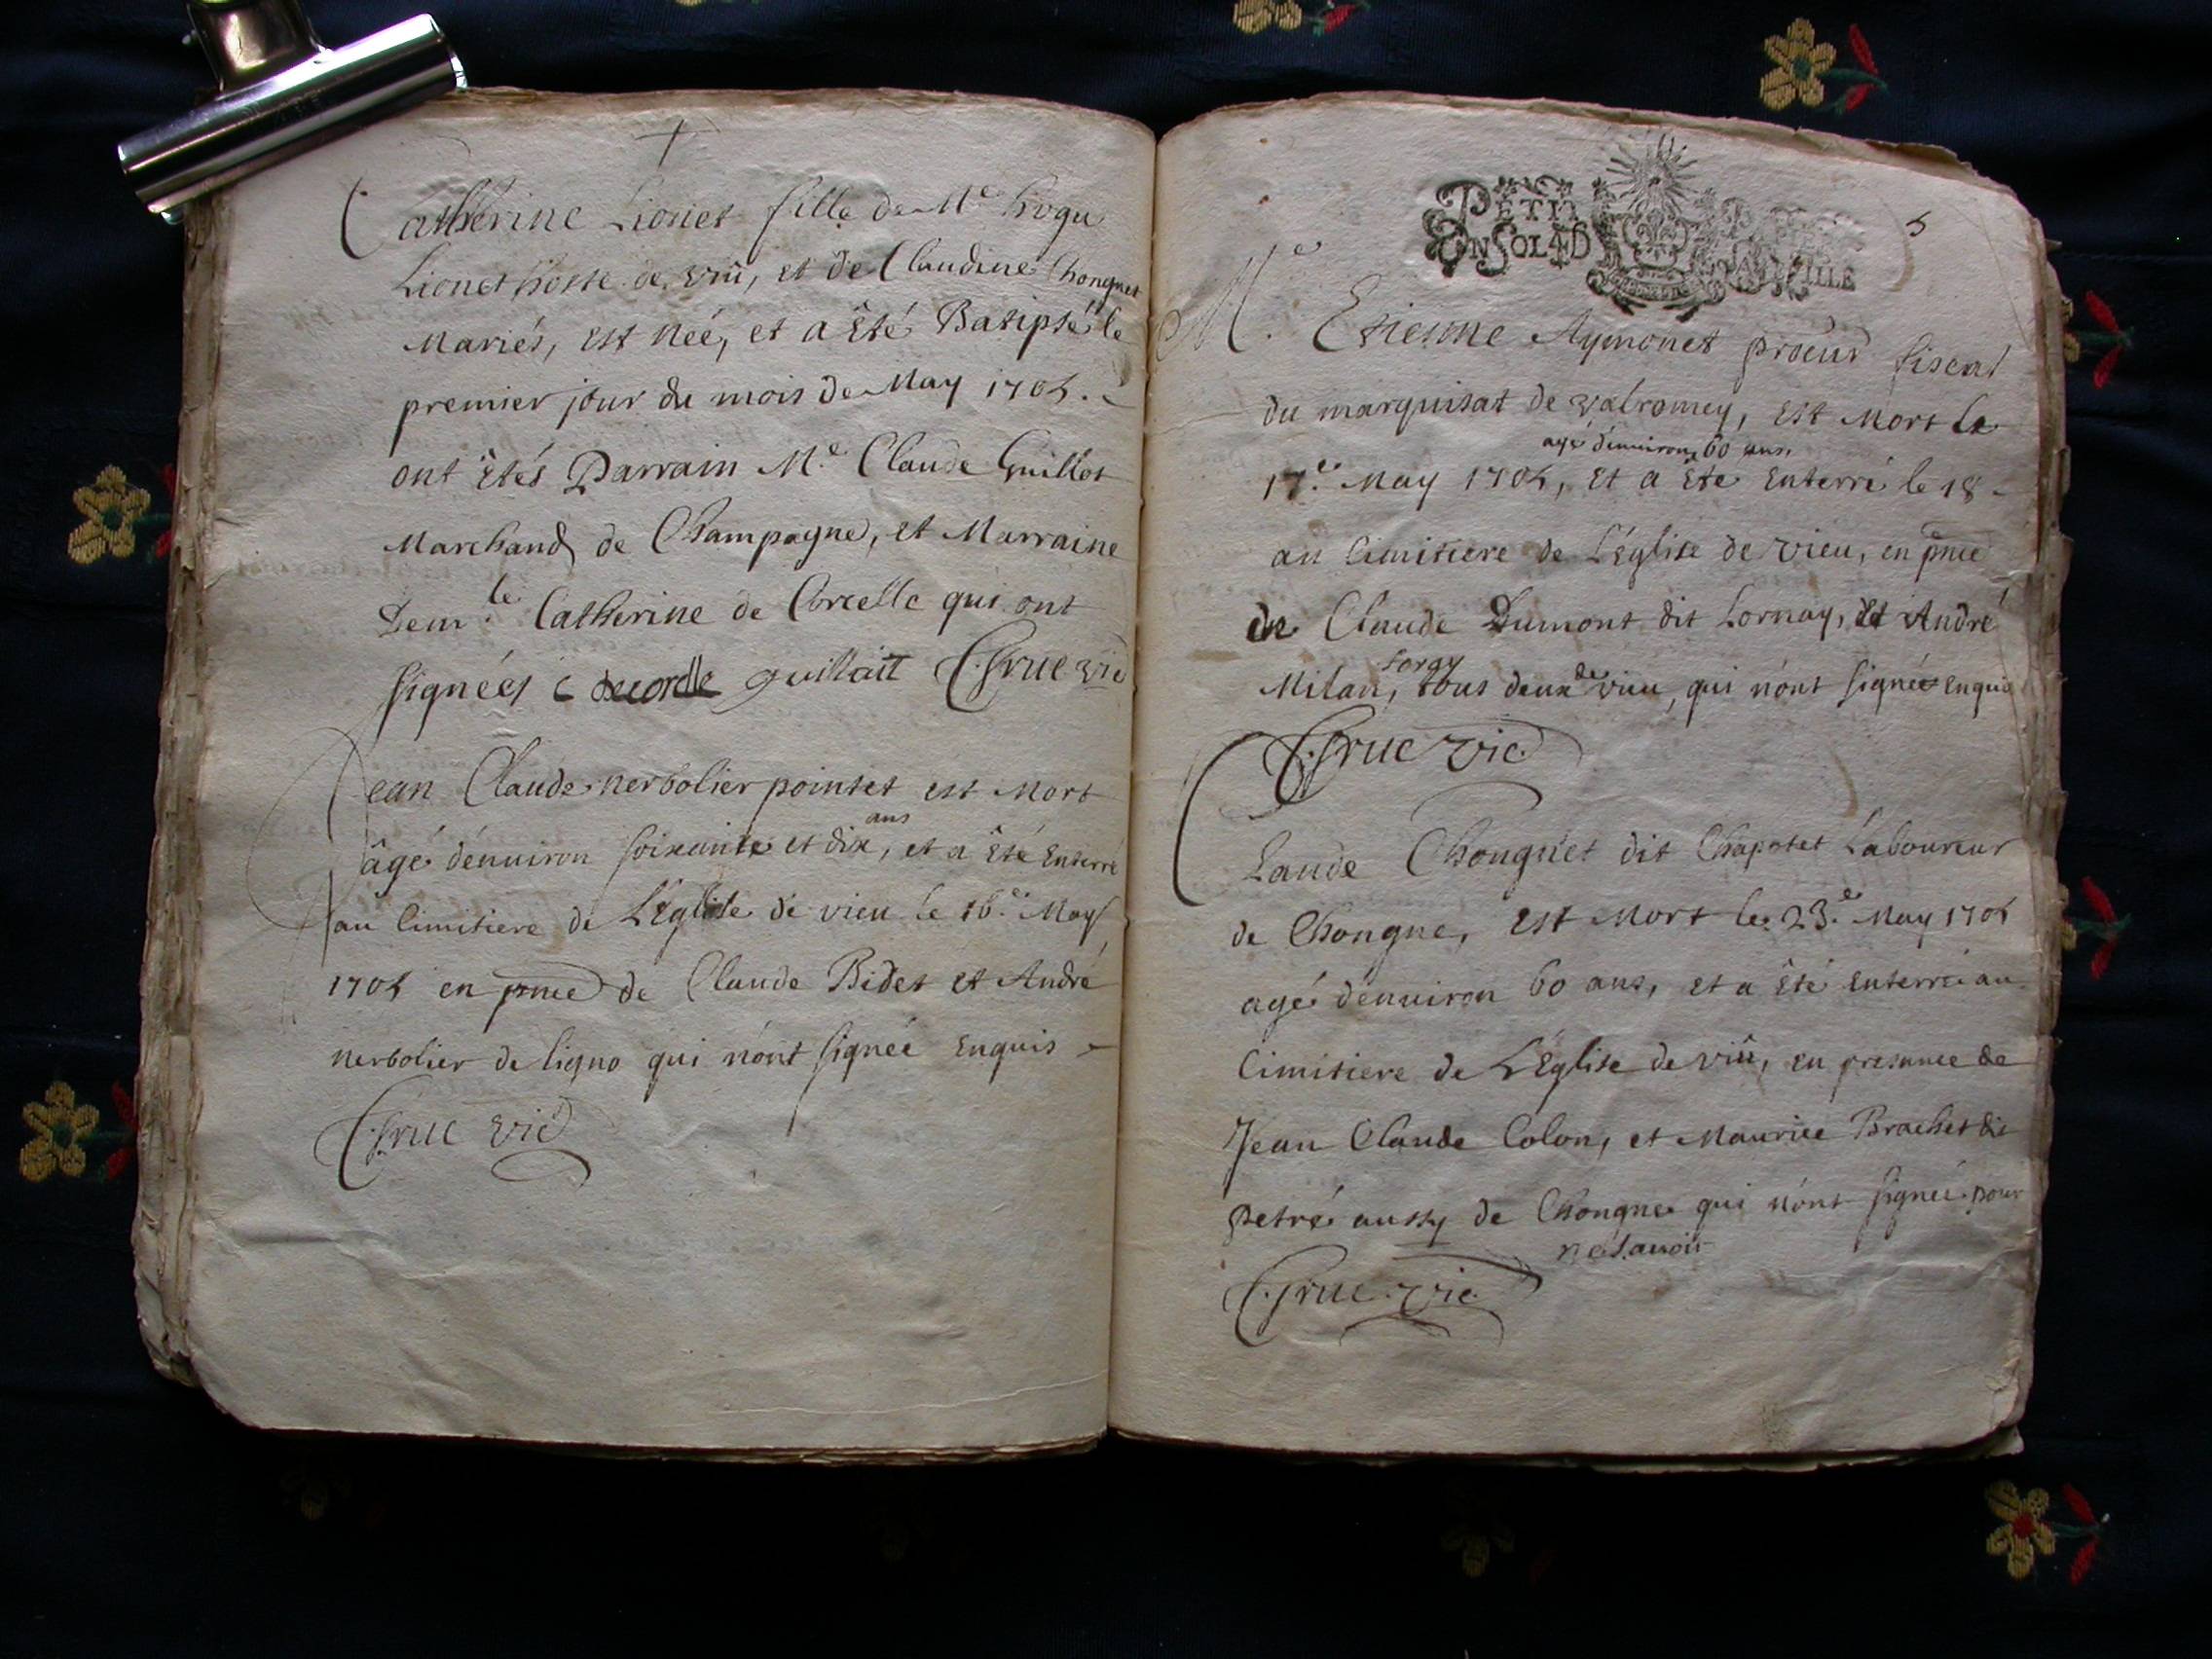 Catherine Lionet fille de Me hugu
Lionet hoste de viû, et de Claudine Chongnet
Mariés, est Neé, et a êté Batipsé le
premier jour du mois de May 1705.
ont êtés Parrain Me Claude Guillot
Marchand de Champagne, et Marraine
Demle Catherine de Corcelle qui ont
signées C decorelle guillait C. Gruc vic
Jean Claude nerbolier pointet est Mort
âgé d'enuiron soixante et dix ans, et a êté Enterré
au Cimitiere de L'Eglise de vieu le 16e May
1705 en pnce de Claude Bidet et André
nerbolier de ligno qui n'ont signée Enquis
C. Gruc vic
PETIT
EN SOL 4 D
LLE
5
Me Etienne Aymonet procur fiscal
du marquisat de valromey, est Mort le
agé d'enuiron 60 ans,
17e May 1705, Et a êté Enterré le 18
au Cimitiere de L'Eglise de vieu, en pnce
de Claude Dumont dit Lornay, et André
Milan, forgy tous deux de vieu, qui n'ont signée Enquis
C. Gruc vic.
Claude Chongnet dit Chapotet Laboureur
de Chongne, est Mort le 23e May 1705
agé d'enuiron 60 ans, et a êté enterré au
Cimitiere de L'Eglise de viû, en presance de
Jean Claude Colon, et Maurice Brachet dit
petré aussy de Chongne qui n'ont signée pour
ne sauoir
C. Gruc vic.